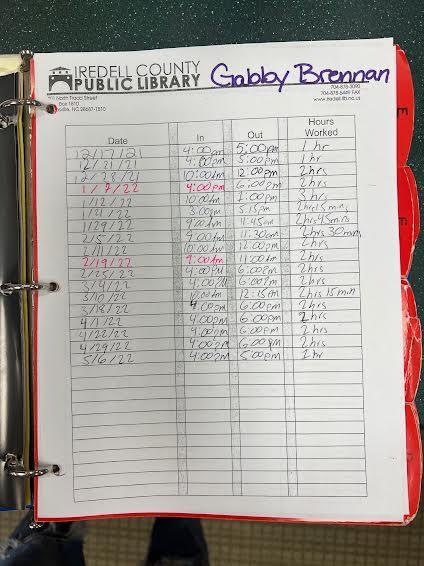 IREDELL COUNTY
PUBLIC LIBRARY
Gabby Brennan
North Tradd Street
Box 1810
NC 28687-1810
704-878-3090
704-878-5449 FAX
www.iredell.lib.nc.us
Date In Out Hours Worked
12/17/21 4:00pm 5:00pm 1 hr
12/21/21 4:00pm 5:00pm 1 hr
12/28/21 10:00am 12:00pm 2hrs
1/7/22 4:00pm 6:00pm 2hrs
1/12/22 10:00am 1:00pm 3hrs
1/21/22 3:00pm 5:15pm 2hrs 15mins
1/29/22 9:00am 11:45am 2hrs 45mins
2/5/22 9:00am 11:30am 2hrs 30mins
2/11/22 10:00am 12:00pm 2hrs
2/19/22 9:00am 11:00am 2hrs
2/25/22 4:00PM 6:00pm 2hrs
3/4/22 4:00PM 6:00pm 2hrs
3/10/22 12:15pm 2hrs 15min
3/18/22 4:00pm 6:00pm 2hrs
4/1/22 4:00pm 6:00pm 2hrs
4/22/22 4:00pm 6:00pm 2hrs
4/29/22 4:00pm 6:00pm 2hrs
5/6/22 4:00pm 5:00pm 1hr